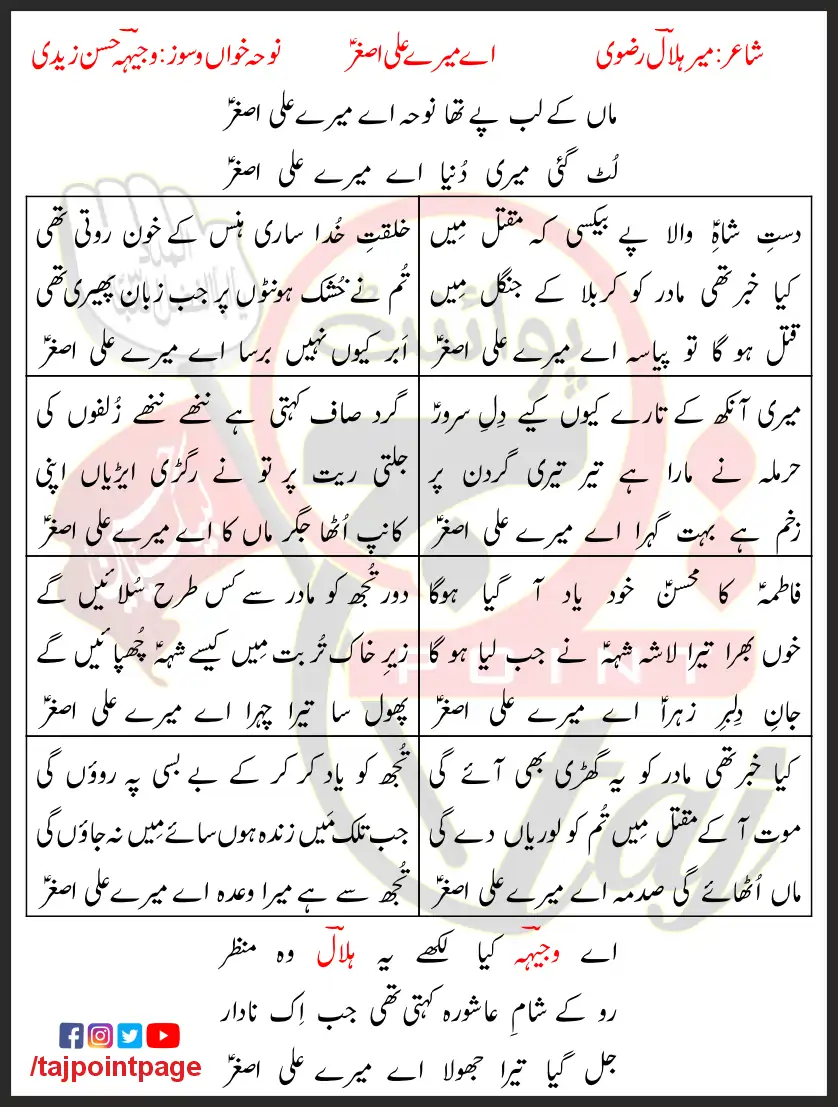 شاعر: میر ہلالؔ رضوی
اے میرے علی اصغرؑ
نوحہ خواں و سوز: وجیہہؔ حسن زیدی
ماں کے لب پے تھا نوحہ اے میرے علی اصغرؑ
لُٹ گئی میری دُنیا اے میرے علی اصغرؑ
دستِ شاہِؑ والا پے بیکسی کہ مقتل مِیں
کیا خبر تھی مادر کو کربلا کے جنگل مِیں
قتل ہو گا تو پیاسہ اے میرے علی اصغرؑ
خلقتِ خُدا ساری ہنس کے خون روتی تھی
تُم نے خُشک ہونٹوں پر جب زبان پھیری تھی
اَبر کیوں نہیں برسا اے میرے علی اصغرؑ
میری آنکھ کے تارے کیوں کیے دِلِ سرورؑ
حرملہ نے مارا ہے تیر تیری گردن پر
زخم ہے بہت گہرا اے میرے علی اصغرؑ
گرد صاف کہتی ہے ننھے ننھے زُلفوں کی
جلتی ریت پر تو نے رگڑی ایڑیاں اپنی
کانپ اُٹھا جگر ماں کا اے میرے علی اصغرؑ
فاطمہؑ کا محسنؑ خود یاد آ گیا ہوگا
خوں بھرا تیرا لاشہ شہہؑ نے جب لیا ہو گا
جانِ دِلبرِ زہراؑ اے میرے علی اصغرؑ
دور تُجھ کو مادر سے کس طرح سُلائیں گے
زیرِ خاک تُربت مِیں کیسے شہہؑ چُھپائیں گے
پھول سا تیرا چہرا اے میرے علی اصغرؑ
کیا خبر تھی مادر کو یہ گھڑی بھی آئے گی
موت آ کے مقتل مِیں تُم کو لوریاں دے گی
ماں اُٹھائے گی صدمہ اے میرے علی اصغرؑ
تُجھ کو یاد کر کر کے بے بسی پہ روؤں گی
جب تلک مَیں زندہ ہوں سائے مِیں نہ جاؤں گی
تُجھ سے ہے میرا وعدہ اے میرے علی اصغرؑ
اے وجیہہؔ کیا لکھے یہ ہلالؔ وہ منظر
رو کے شامِ عاشورہ کہتی تھی جب اِک نادار
جل گیا تیرا جھولا اے میرے علی اصغرؑ
پوائنٹ
POINT
taj
/tajpointpage